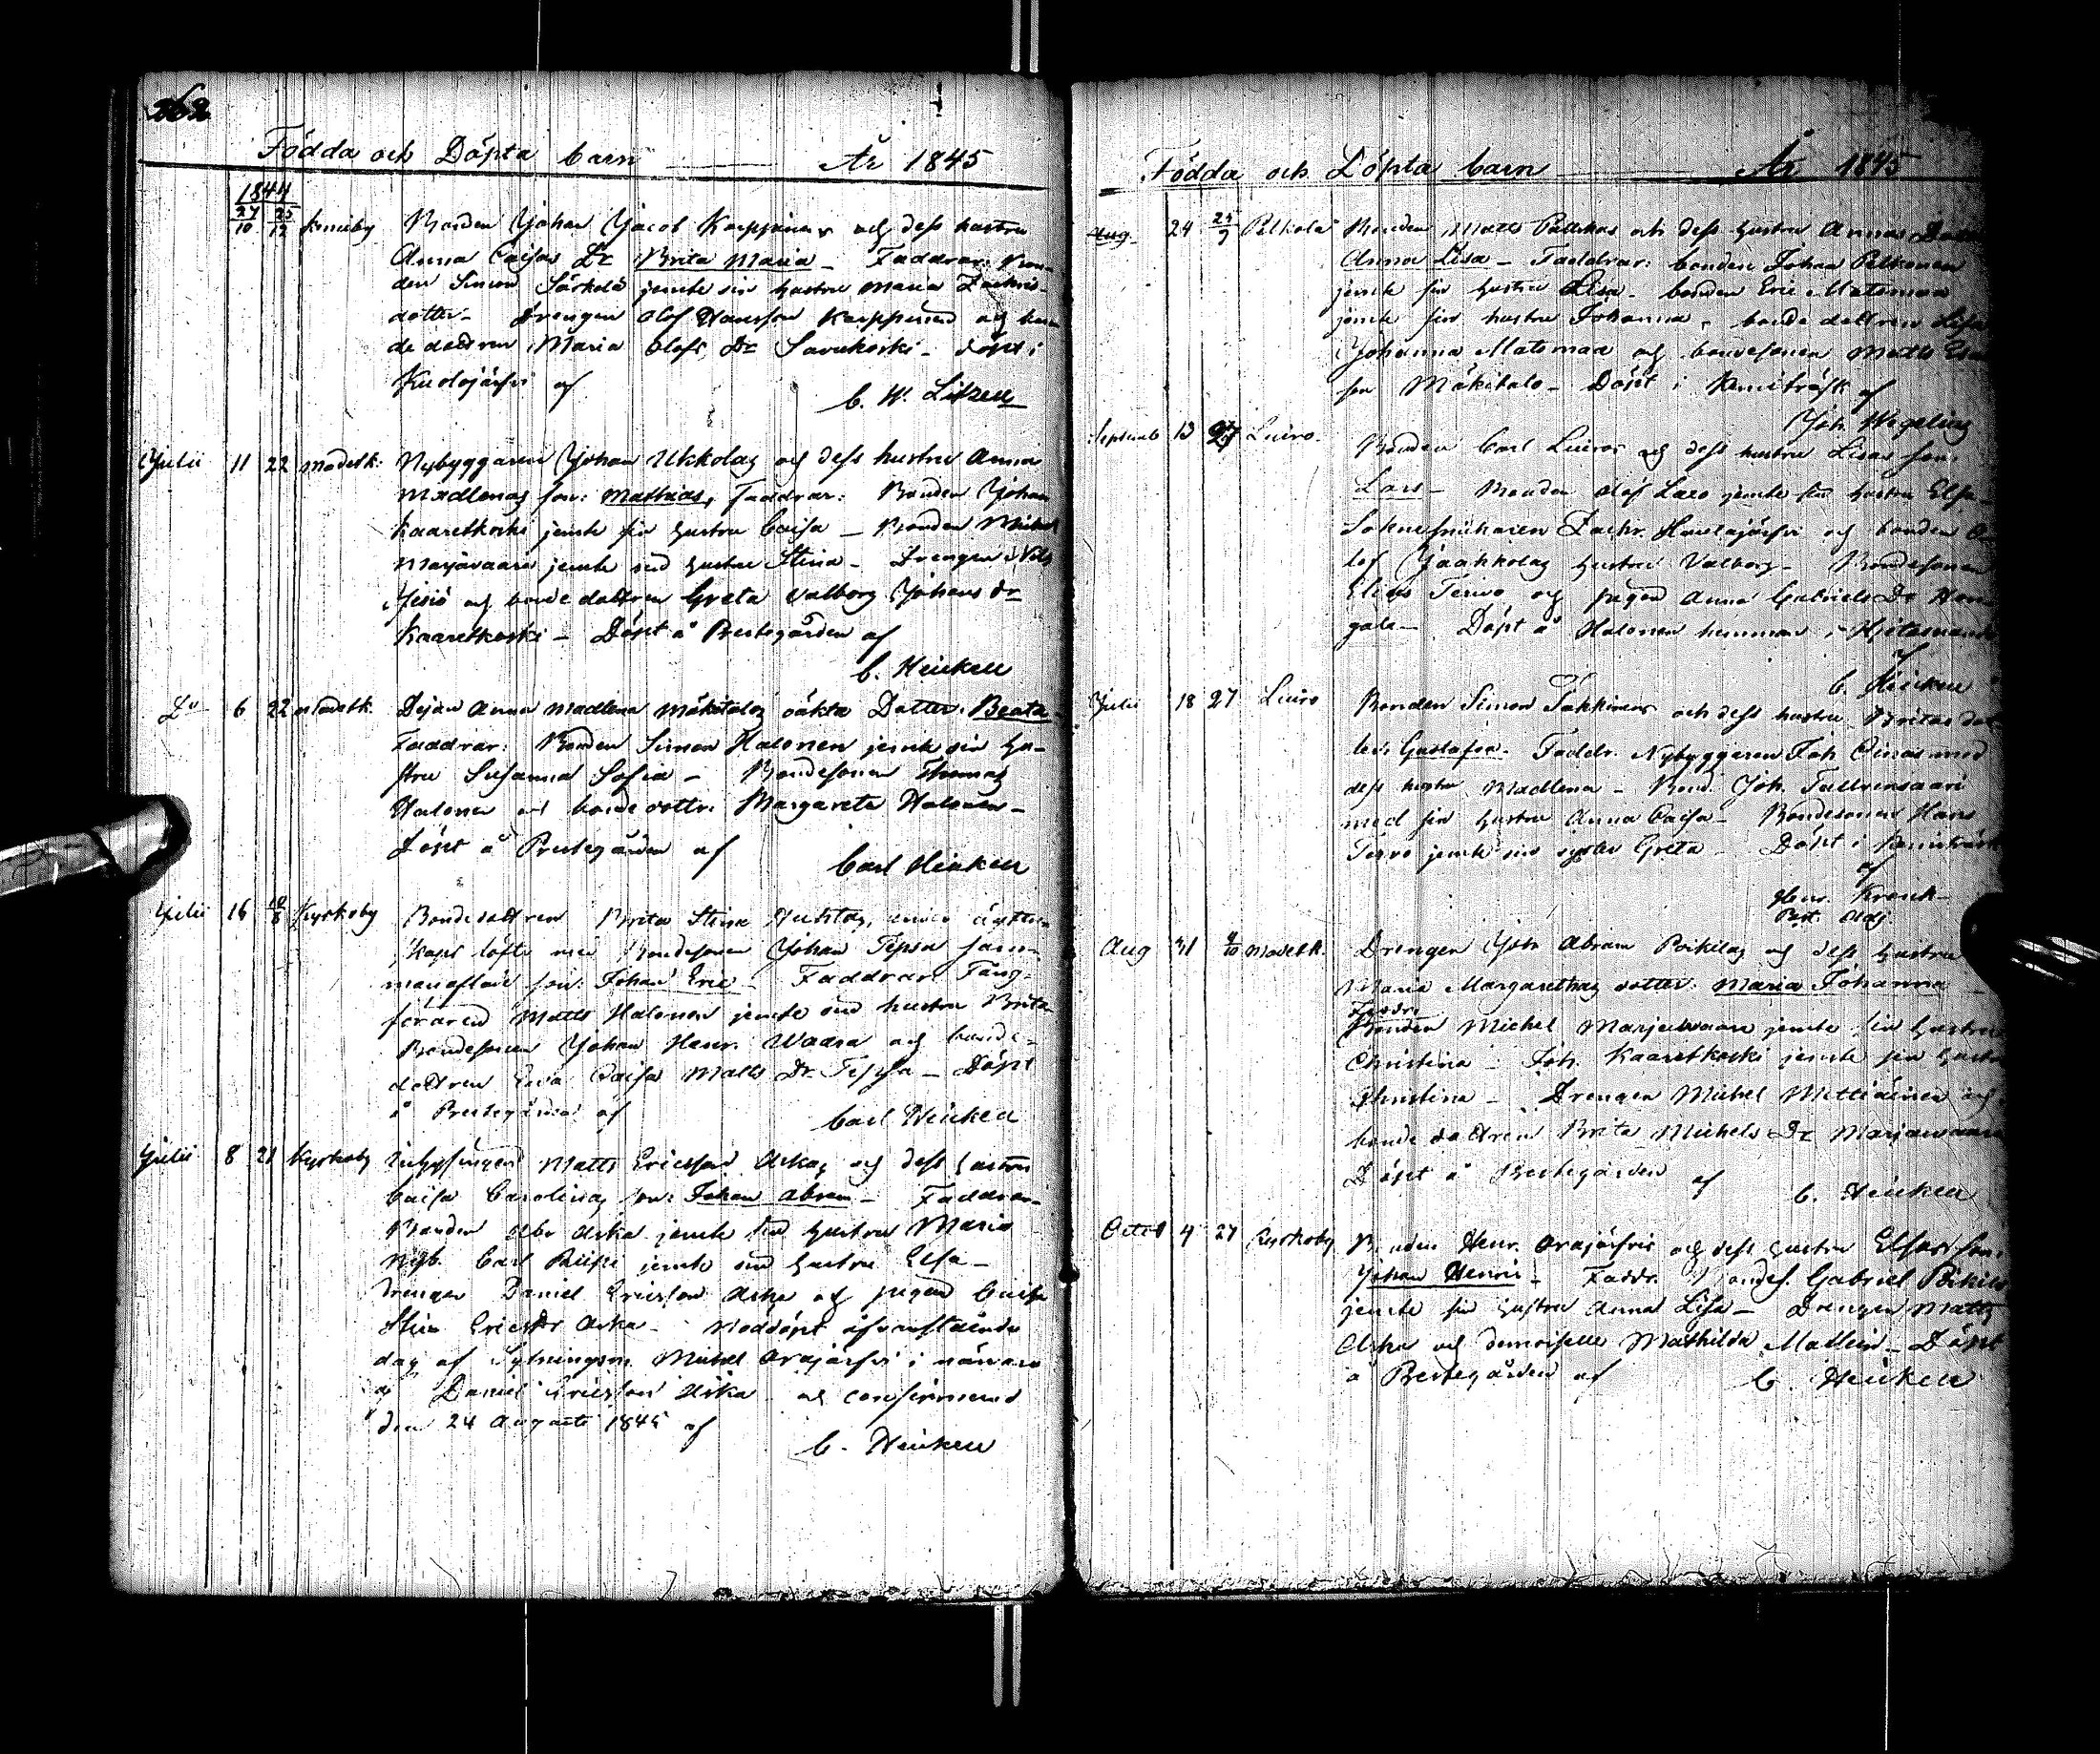 Födda och Döpta barn År 1845
1844
27/10 25/12 Kemiby Bonden Johan Jacob Karppinens och dess hustru
Anna Caisas Dr Brita Maria - Faddrar: Bon-
den Simon Särkelä jemte sin hustru Maria Zachris-
dotter - Drengen Olof Hansson Karppinen och bon-
dedottren Maria Olofs Dr Savukoski - döpt i
Kuolajärfvi af
C. W. Litzen
Julii 11 22 Madetk: Nybyggaren Johan Ukkolas och dess hustru Anna
Madlenas son: Mathias, Faddrar: Bonden Johan
Kaaretkoski jemte sin hustru Caisa - Bonden Michel
Marjavaara jemte sin hustru Stina - Drengen Nils
och bonde dottren Greta Valborg Johans dr
Kaaretkoski - Döpt å Prestegården af
C. Heiken
Do 6 22 Madetk. Dejan Anna Madlena Mäkitalos oäkta Dotter: Beata
Faddrar: Bonden Simon Halonen jemte sin hu-
stru Susanna Sofia - Bondesonen Thomas
Halonen och bondedottr. Margareta Halonen -
Döpt å Prestegården af
Carl Heiken
Julii 16 10/8 Kyrkoby Bondedottren Brita Stina under äkten-
skaps löfte med Bondesonen Johan Tepsa sam-
manaflade son: Johan Eric - Faddrar:
Matts Halonen jemte sin hustru Brita
Bondesonen Johan Henr. Waara och bonde-
dottren Eva Caisa Matts Dr Tepsa - Döpt
å Prestegården af
Carl Heiken
Julii 8 21 Kyrkoby Matts Ericsson Askas och dess hustru
Caisa Carolinas son: Johan Abram - Faddrar
Bonden Abr Aska jemte sin hustru Maria
Nyb. Carl jemte sin hustru Elsa -
Drengen Daniel Ericsson Aska och pigan Caisa
Stina Erics Dr Aska - Nöddöpt ofvanstående
dag af Michel Orajärfvi i närvaro
af Daniel Ericsson Aska och confirmerad
den 24 Augusti 1845 af
C. Heiken
Födda och Döpta barn År 1845
Aug. 24 25/9 Pelkola Bonden Matts och dess hustru Annas Dotter
Anna Lisa - Faddrar: bonden Johan Pelkonen
jemte sin hustru Lisa - bonden Eric Matomaa
jemte sin hustru Johanna, bonde dottren Lisa
Johanna Matomaa och bondesonen Matts
son Mäkitalo - Döpt i Kemiträsk af
Joh. Wegelius
Septemb 13 27 Luiro. Bonden Carl Luiros och dess hustru Lisas son.
Lars - Bonden Olof Laro jemte sin hustru Elsa -
Zachr. och bonden O-
lof Jaakkolas hustru Valborg - Bondesonen
Elias Tervo och pigan Anna Gabriels Dr
Döpt å Halonen hemman i
af
C. Heiken
Julii 18 27 Luiro Bonden Simon och dess hustru Britas dot-
ter: Gustafva. Faddr. Nybyggaren Joh. med
dess hustru Madlena - Bond. Joh.
med sin hustru Anna Caisa - Bondesonen Hans
Tervo jemte sin syster Greta - Döpt i Kemiträsk
af
Henr. Kranck
Past. Adj.
Aug 31 4/10 Madetk. Drengen Joh Abram Poikelas och dess hustru
Maria Margarethas dotter: Maria Johanna -
Faddr.
Bonden Michel Marjavaara jemte sin hustru
Christina - Joh. Kaaretkoski jemte sin hustru
Christina - Drengen Michel och
bonde dottren Brita Michels Dr Marjavaara
Döpt å Prestegården af
C. Heiken
Octob 4 27 Kyrkoby Bonden Henr. Orajärfvis och dess hustru Elsas son.
Johan Henric - Faddr. Bondes. Gabriel Poikela
jemte sin hustru Anna Lisa - Drengen Matts
Aska och demoiselle Mathilda - Döpt
å Prestegården af
C. Heiken